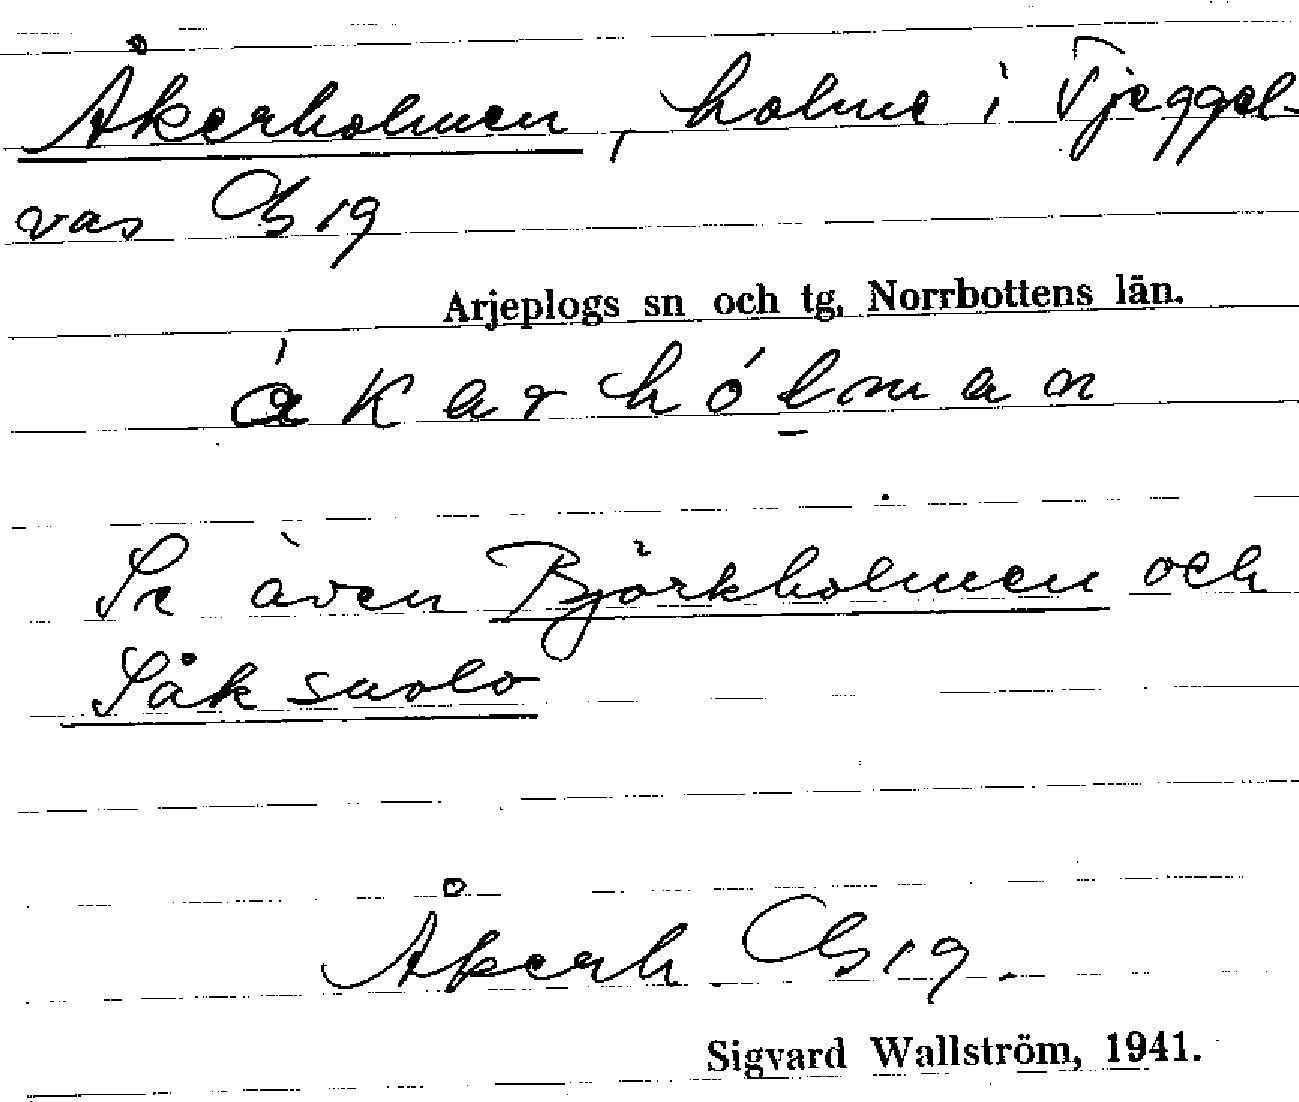 Åkerholmen, holme i Tjeggel-
vas Gb 19
Arjeplogs sn och tg, Norrbottens län.
á k a r h ó l m a n
Se även Björkholmen och
Såk suolo
Åkerh Gb 19.
Sigvard Wallström, 1941.